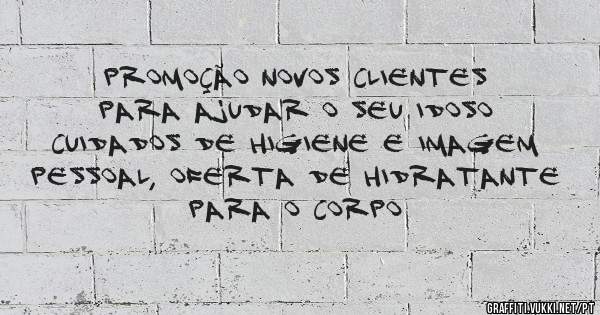 PROMOÇÃO NOVOS CLIENTES
PARA AJUDAR O SEU IDOSO
CUIDADOS DE HIGIENE E IMAGEM
PESSOAL, OFERTA DE HIDRATANTE
PARA O CORPO
GRAFFITI.VUKKI.NET/PT